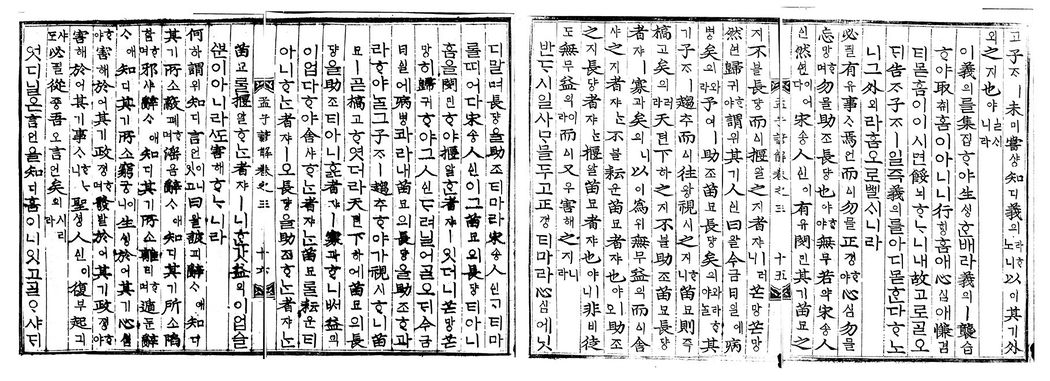 고子ᄌᆞㅣ未미嘗샹知디義의라ᄒᆞ노니以이其기外
외之지也야ㅣ니라
이義의를集집ᄒᆞ야生ᄉᆡᆼ혼배라義의ㅣ襲습
ᄒᆞ야取ᄎᆔ홈이아니니行ᄒᆡᆼ홈애心심애慊겸
티몯홈이이시면餒뇌ᄒᆞᄂᆞ니내故고로ᄀᆞᆯ오
ᄃᆡ告고子ᄌᆞㅣ일즉義의를아디몯ᄒᆞᆫ다ᄒᆞ노
니그外외라홈으로ᄡᅦ니라
必필有유事ᄉᆞ焉언而이勿믈正졍ᄒᆞ야心심勿믈
忘망ᄒᆞ며勿믈助조長댱也야ᄒᆞ야無무若약宋송人인
然연이어다宋송人인이有유閔민其기苗묘之
孟子諺解卷之三 十五
지不블長댱而이揠알之지者쟈ㅣ러니芒망芒망
然연歸귀ᄒᆞ야謂위其기人인曰왈今금日일에病
병矣의와라予여ㅣ助조苗묘長댱矣의와라ᄒᆞ야ᄂᆞᆯ其
기子ᄌᆞㅣ趨추而이往왕視시之지ᄒᆞ니苗묘則즉
槁고矣의러라天텬下하之지不블助조苗묘長댱
者쟈ㅣ寡과矣의니以이爲위無무益익而이舍
샤之지者쟈ᄂᆞᆫ不블耘운苗묘者쟈也야ㅣ오助조
之지長댱者쟈ᄂᆞᆫ揠알苗묘者쟈也야ㅣ니非비徒
도無무益익이라而이又우害해之지니라
반ᄃᆞ시일사모믈두고正졍티마라心심에닛
디말며長댱을助조티마라宋송人인ᄀᆞ티마
롤띠어다宋송人인이그苗묘의長댱티아니
홈을閔민ᄒᆞ야揠알ᄒᆞᆫ者쟈ㅣ잇더니芒망芒
망히歸귀ᄒᆞ야그人인ᄃᆞ려닐어ᄀᆞᆯ오ᄃᆡ今금
日일에病병콰라내苗묘의長댱을助조호과
라ᄒᆞ야ᄂᆞᆯ그子ᄌᆞㅣ趨추ᄒᆞ야가視시ᄒᆞ니苗
묘ㅣ곧槁고ᄒᆞ엿더라天텬下하에苗묘의長
댱을助조티아니ᄒᆞᆯ者쟈ㅣ寡과ᄒᆞ니ᄡᅥ益익
이업다ᄒᆞ야舍샤ᄒᆞᄂᆞᆫ者쟈ᄂᆞᆫ苗묘를耘운티
아니ᄒᆞᄂᆞᆫ者쟈ㅣ오長댱을助조ᄒᆞᄂᆞᆫ者쟈ᄂᆞᆫ
孟子諺解卷之三 十六
苗묘를揠알ᄒᆞᄂᆞᆫ者쟈ㅣ니ᄒᆞᆫ갓益익이업슬
ᄲᅮᆫ이아니라ᄯᅩ害해ᄒᆞᄂᆞ니라
何하謂위知디言언이니잇고曰왈詖피辭ᄉᆞ애知디
其기所소蔽폐ᄒᆞ며淫음辭ᄉᆞ애知디其기所소陷
함ᄒᆞ며邪샤辭ᄉᆞ애知디其기所소離리ᄒᆞ며遁둔辭
ᄉᆞ애知디其기所소窮궁이니生ᄉᆡᆼ於어其기心심ᄒᆞ
야害해於어其기政졍ᄒᆞ며發발於어其기政졍ᄒᆞ야
害해於어其기事ᄉᆞᄒᆞᄂᆞ니聖셩人인이復부起긔
샤도必필從죵吾오言언矣의시리라
엇디닐온言언을知디홈이니잇고ᄀᆞᆯᄋᆞ샤ᄃᆡ